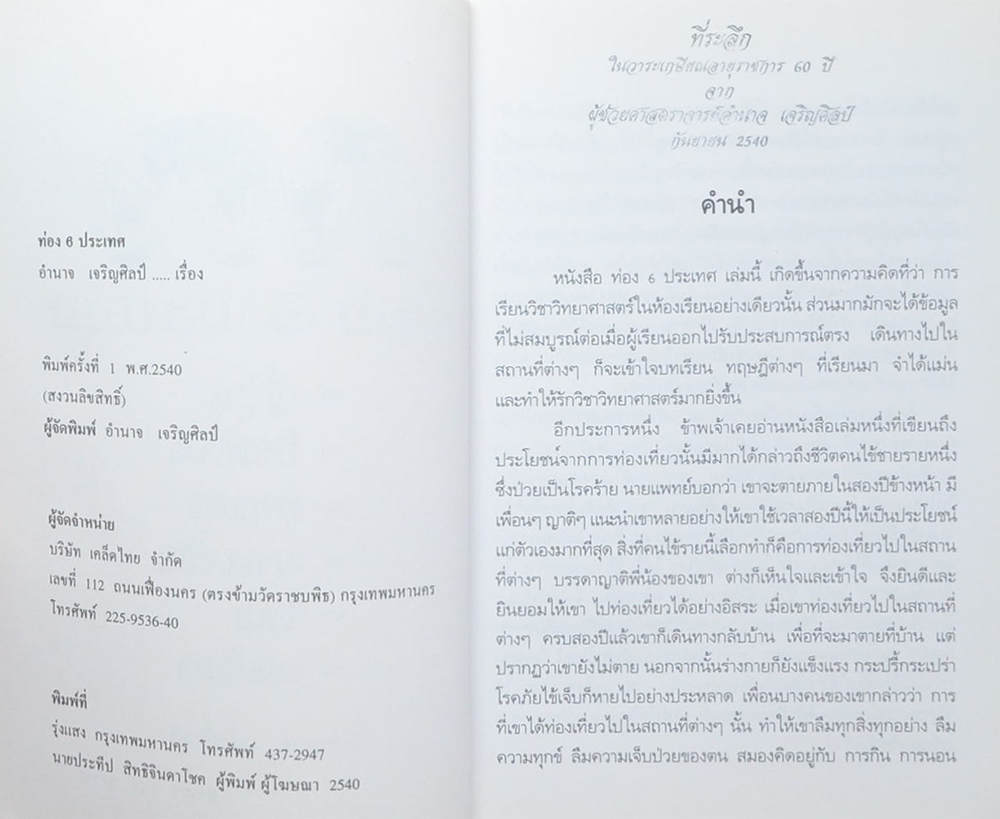 ท่อง 6 ประเทศ
อำนาจ เจริญศิลป์ ..... เรื่อง
พิมพ์ครั้งที่ 1 พ.ศ.2540
(สงวนลิขสิทธิ์)
ผู้จัดพิมพ์ อำนาจ เจริญศิลป์
ผู้จัดจำหน่าย
บริษัท เคล็ดไทย จำกัด
เลขที่ 112 ถนนเฟื่องนคร (ตรงข้ามวัดราชบพิธ) กรุงเทพมหานคร
โทรศัพท์ 225-9536-40
พิมพ์ที่
รุ่งแสง กรุงเทพมหานคร โทรศัพท์ 437-2947
นายประทีป สิทธิจินดาโชค ผู้พิมพ์ ผู้โฆษณา 2540
ที่ระลึก
ในวาระเกษียณอายุราชการ 60 ปี
จาก
ผู้ช่วยศาสตราจารย์อำนาจ เจริญศิลป์
กันยายน 2540
คำนำ
หนังสือ ท่อง 6 ประเทศ เล่มนี้ เกิดขึ้นจากความคิดที่ว่า การ
เรียนวิชาวิทยาศาสตร์ในห้องเรียนอย่างเดียวนั้น ส่วนมากมักจะได้ข้อมูล
ที่ไม่สมบูรณ์ต่อเมื่อผู้เรียนออกไปรับประสบการณ์ตรง เดินทางไปใน
สถานที่ต่างๆ ก็จะเข้าใจบทเรียน ทฤษฎีต่างๆ ที่เรียนมา จำได้แม่น
และทำให้รักวิชาวิทยาศาสตร์มากยิ่งขึ้น
อีกประการหนึ่ง ข้าพเจ้าเคยอ่านหนังสือเล่มหนึ่งที่เขียนถึง
ประโยชน์จากการท่องเที่ยวนั้นมีมากได้กล่าวถึงชีวิตคนไข้ชายรายหนึ่ง
ซึ่งป่วยเป็นโรคร้าย นายแพทย์บอกว่า เขาจะตายภายในสองปีข้างหน้า มี
เพื่อนๆ ญาติๆ แนะนำเขาหลายอย่างให้เขาใช้เวลาสองปีนี้ให้เป็นประโยชน์
แก่ตัวเองมากที่สุด สิ่งที่คนไข้รายนี้เลือกทำก็คือการท่องเที่ยวไปในสถาน
ที่ต่างๆ บรรดาญาติพี่น้องของเขา ต่างก็เห็นใจและเข้าใจ จึงยินดีและ
ยินยอมให้เขา ไปท่องเที่ยวได้อย่างอิสระ เมื่อเขาท่องเที่ยวไปในสถานที่
ต่างๆ ครบสองปีแล้วเขาก็เดินทางกลับบ้าน เพื่อที่จะมาตายที่บ้าน แต่
ปรากฏว่าเขายังไม่ตาย นอกจากนั้นร่างกายก็ยังแข็งแรง กระปรี้กระเปร่า
โรคภัยไข้เจ็บก็หายไปอย่างประหลาด เพื่อนบางคนของเขากล่าวว่า การ
ที่เขาได้ท่องเที่ยวไปในสถานที่ต่างๆ นั้น ทำให้เขาลืมทุกสิ่งทุกอย่าง ลืม
ความทุกข์ ลืมความเจ็บป่วยของตน สมองคิดอยู่กับ การกิน การนอน